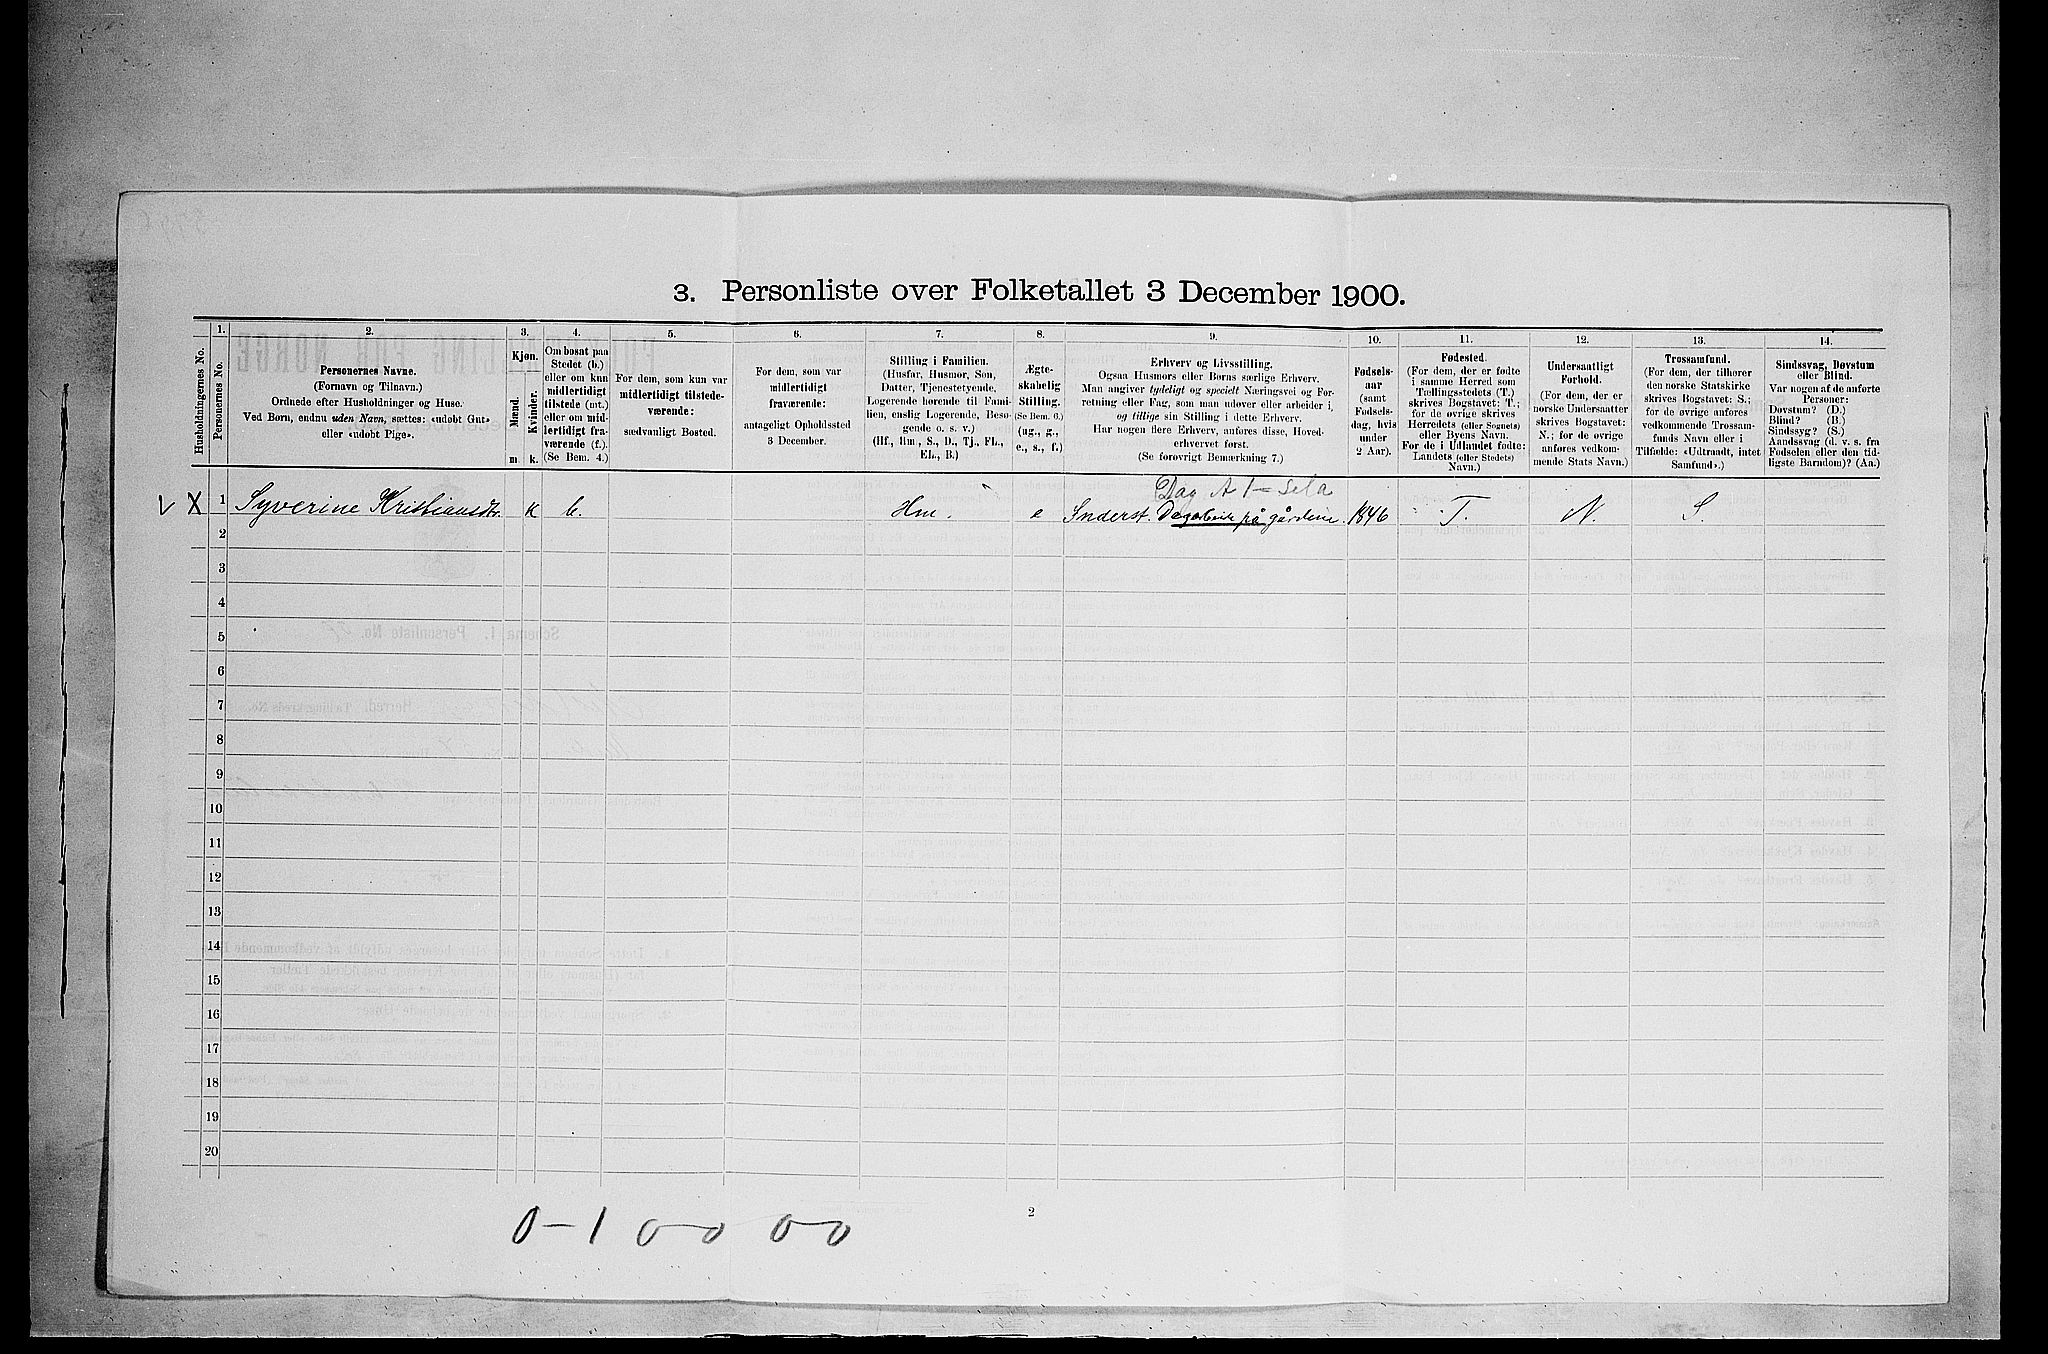 3. Personliste over Folketallet 3 December 1900.
Husholdningernes No.
1.
Personernes No.
2.
Personernes Navne.
(Fornavn og Tilnavn.)
Ordnede efter Husholdninger og Huse.
Ved Børn, endnu uden Navn, sættes: «udøbt Gut»
eller «udøbt Pige».
3.
Kjøn.
Mænd.
Kvinder.
m. k.
4.
Om bosat paa
Stedet (b.)
eller om kun
midlertidigt
tilstede (mt.)
eller om mid-
lertidigt fra-
værende (f.).
(Se Bem. 4.)
5.
For dem, som kun var
midlertidigt tilstede-
værende:
sædvanligt Bosted.
6.
For dem, som var
midlertidigt
fraværende:
antageligt Opholdssted
3 December.
7.
Stilling i Familien.
(Husfar, Husmor, Søn,
Datter, Tjenestetyende,
Logerende hørende til Fami-
lien, enslig Logerende, Besø-
gende o. s. v.)
(Hf., Hm., S., D., Tj., FL.,
EL., B.)
8.
Ægte-
skabelig
Stilling.
(Se Bem. 6.)
(ug., g.,
e., s., f.)
9.
Erhverv og Livsstilling.
Ogsaa Husmors eller Børns særlige Erhverv.
Man angiver tydeligt og specielt Næringsvei og For-
retning eller Fag, som man udøver eller arbeider i,
og tillige sin Stilling i dette Erhverv.
Har nogen flere Erhverv, anføres disse, Hoved-
erhvervet først.
(Se forøvrigt Bemærkning 7.)
10.
Fødsels-
aar
(samt
Fødsels-
dag, hvis
under
2 Aar).
11.
Fødested.
(For dem, der er fødte
i samme Herred som
Tællingsstedets (T.)
skrives Bogstavet: T.;
for de øvrige skrives
Herredets (eller Sognets)
eller Byens Navn.
For de i Udlandet fødte:
Landets (eller Stedets)
Navn.)
12.
Undersaatligt
Forhold.
(For dem, der er
norske Undersaatter
skrives Bogstavet:
N.; for de øvrige
anføres vedkom-
mende Stats Navn.)
13.
Trossamfund.
(For dem, der tilhører
den norske Statskirke
skrives Bogstavet: S.;
for de øvrige anføres
vedkommende Trossam-
funds Navn eller i
Tilfælde: «Udtraadt, intet
Samfund».)
14.
Sindssvag, Døvstum
eller Blind.
Var nogen af de anførte
Personer:
Døvstum? (D.)
Blind? (B.)
Sindssyg? (S.)
Aandssvag (d. v. s. fra
Fødselen eller den tid-
ligste Barndom)? (Aa.)
V X 1 Syverine Kristiansdtr. k b. Hm. e Inderst. Dagarbeide på gårdene. 1846 T. N. S.
2
3
4
5
6
7
8
9
10
11
12
13
14
15
16
17
18
19
20
0-1 0-0 0-0
2